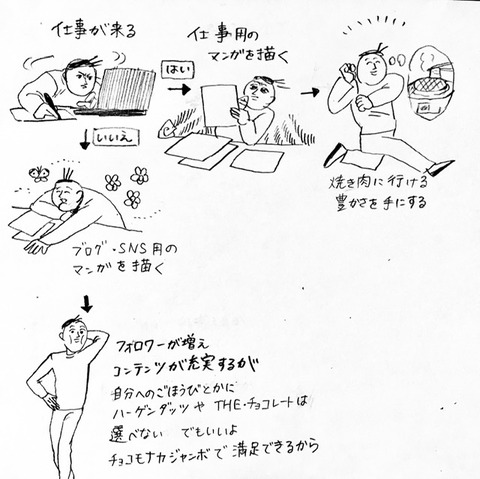 仕事が来る
はい
仕事用の
マンガを描く
焼き肉に行ける
豊かさを手にする
いいえ
ブログ・SNS用の
マンガを描く
フォロワーが増え
コンテンツが充実するが
自分へのごほうびとかに
ハーゲンダッツや THE・チョコレートは
選べない でもいいよ
チョコモナカジャンボで満足できるから